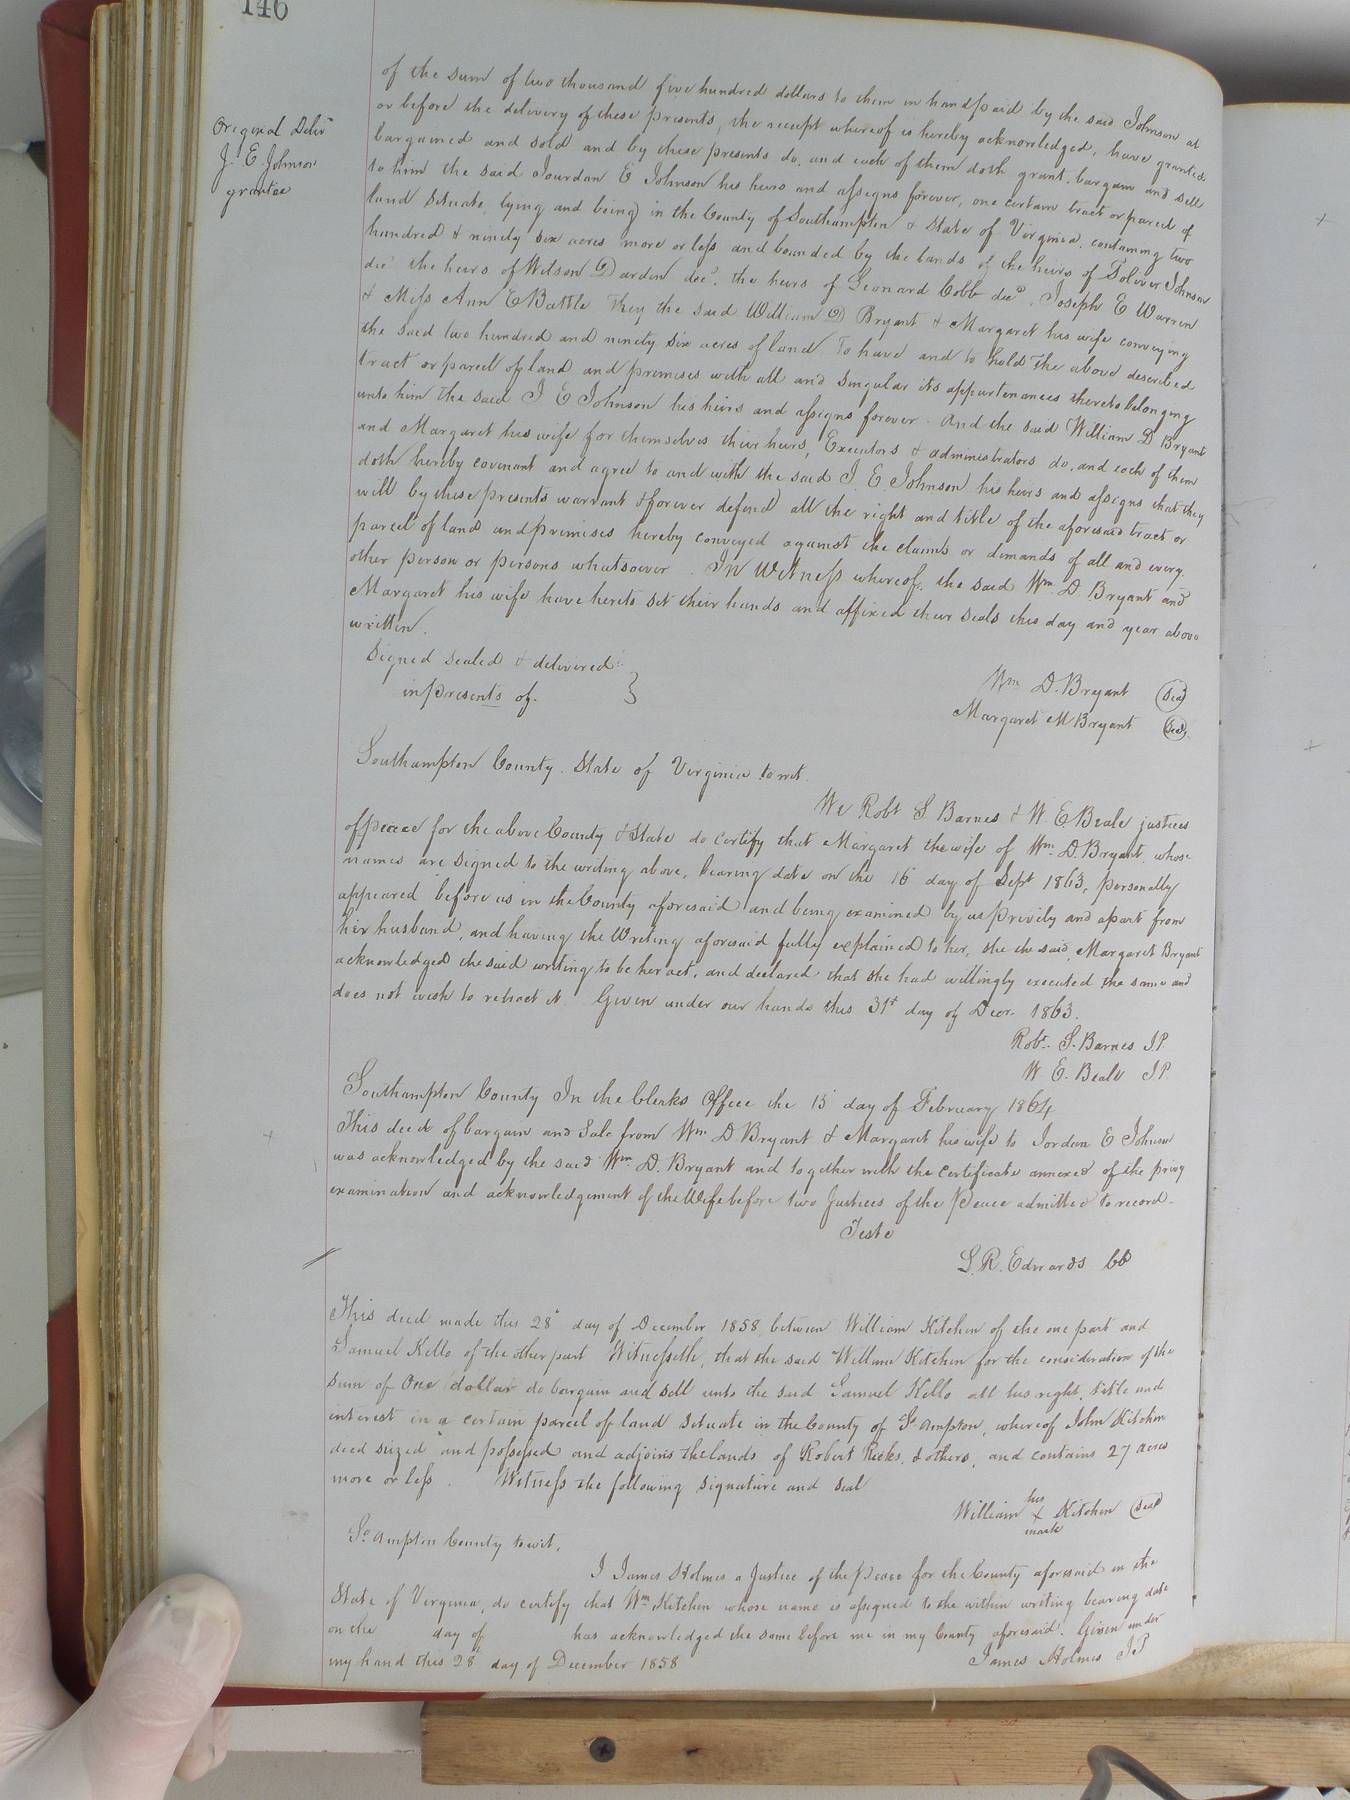 146
Original Delivd
J. E. Johnson
grantee
of the sum of two thousand five hundred dollars to them in hand paid by the said Johnson at
or before the delivery of these presents, the receipt whereof is hereby acknowledged, have granted
bargained and sold and by these presents do, and each of them doth grant, bargain and sell
to him the said Jourdan E Johnson his heirs and assigns forever, one certain tract or parcel of
land situate, lying and being in the County of Southampton & State of Virginia, containing two
hundred & ninety six acres more or less and bounded by the lands of the heirs of Toliver Johnson
decd the heirs of Wilson Darden decd, the heirs of Leonard Cobb decd, Joseph E Warren
& Miss Ann E Battle They the said William D Bryant & Margaret his wife conveying
the said two hundred and ninety six acres of land To have and to hold the above described
tract or parcel of land and premises with all and singular its appurtenances thereto belonging
unto him the said J E Johnson his heirs and assigns forever. And the said William D Bryant
and Margaret his wife for themselves their heirs, Executors & administrators do, and each of them
doth hereby covenant and agree to and with the said J. E. Johnson his heirs and assigns that they
will by these presents warrant & forever defend all the right and title of the aforesaid tract or
parcel of land and premises hereby conveyed against the claims or demands of all and every
other person or persons whatsoever. In Witness whereof, the said Wm. D. Bryant and
Margaret his wife have hereto set their hands and affixed their seals this day and year above
written.
Signed sealed & delivered
in presents of.
Wm D. Bryant (Seal)
Margaret M Bryant (Seal)
Southampton County. State of Virginia to wit.
We Robt S Barnes & W. E. Beale justices
of peace for the above County & State do certify that Margaret the wife of Wm D. Bryant, whose
names are signed to the writing above, bearing date on the 16 day of Sept 1863, personally
appeared before us in the County aforesaid and being examined by us privily and apart from
her husband, and having the Writing aforesaid fully explained to her, she the said Margaret Bryant
acknowledged the said writing to be her act, and declared that she had willingly executed the same and
does not wish to retract it. Given under our hands this 31st day of Decr 1863.
Robt. S. Barnes J.P.
W E. Beale J.P.
Southampton County In the Clerks Office the 15 day of February 1864
This deed of bargain and Sale from Wm D Bryant & Margaret his wife to Jordan E Johnson
was acknowledged by the said Wm. D. Bryant and together with the certificate annexed of the privy
examination and acknowledgement of the Wife before two Justices of the Peace admitted to record.
Teste
L. R. Edwards CC
This deed made this 28 day of December 1858, between William Kitchen of the one part and
Samuel Kello of the other part Witnesseth, that the said William Kitchen for the consideration of the
sum of One dollar do bargain and sell unto the said Samuel Kello all his right, title and
interest in a certain parcel of land situate in the County of So ampton, whereof John Kitchen
died siezed and possessed and adjoins the lands of Robert Ricks, & others, and contains 27 acres
more or less. Witness the following signature and seal
his
William x Kitchen (Seal)
mark
So. ampton County to wit,
I James Holmes a Justice of the Peace for the County aforesaid in the
State of Virginia, do certify that Wm Kitchen whose name is assigned to the within writing bearing date
on the day of has acknowledged the same before me in my County aforesaid. Given under
my hand this 28 day of December 1858
James Holmes J.P